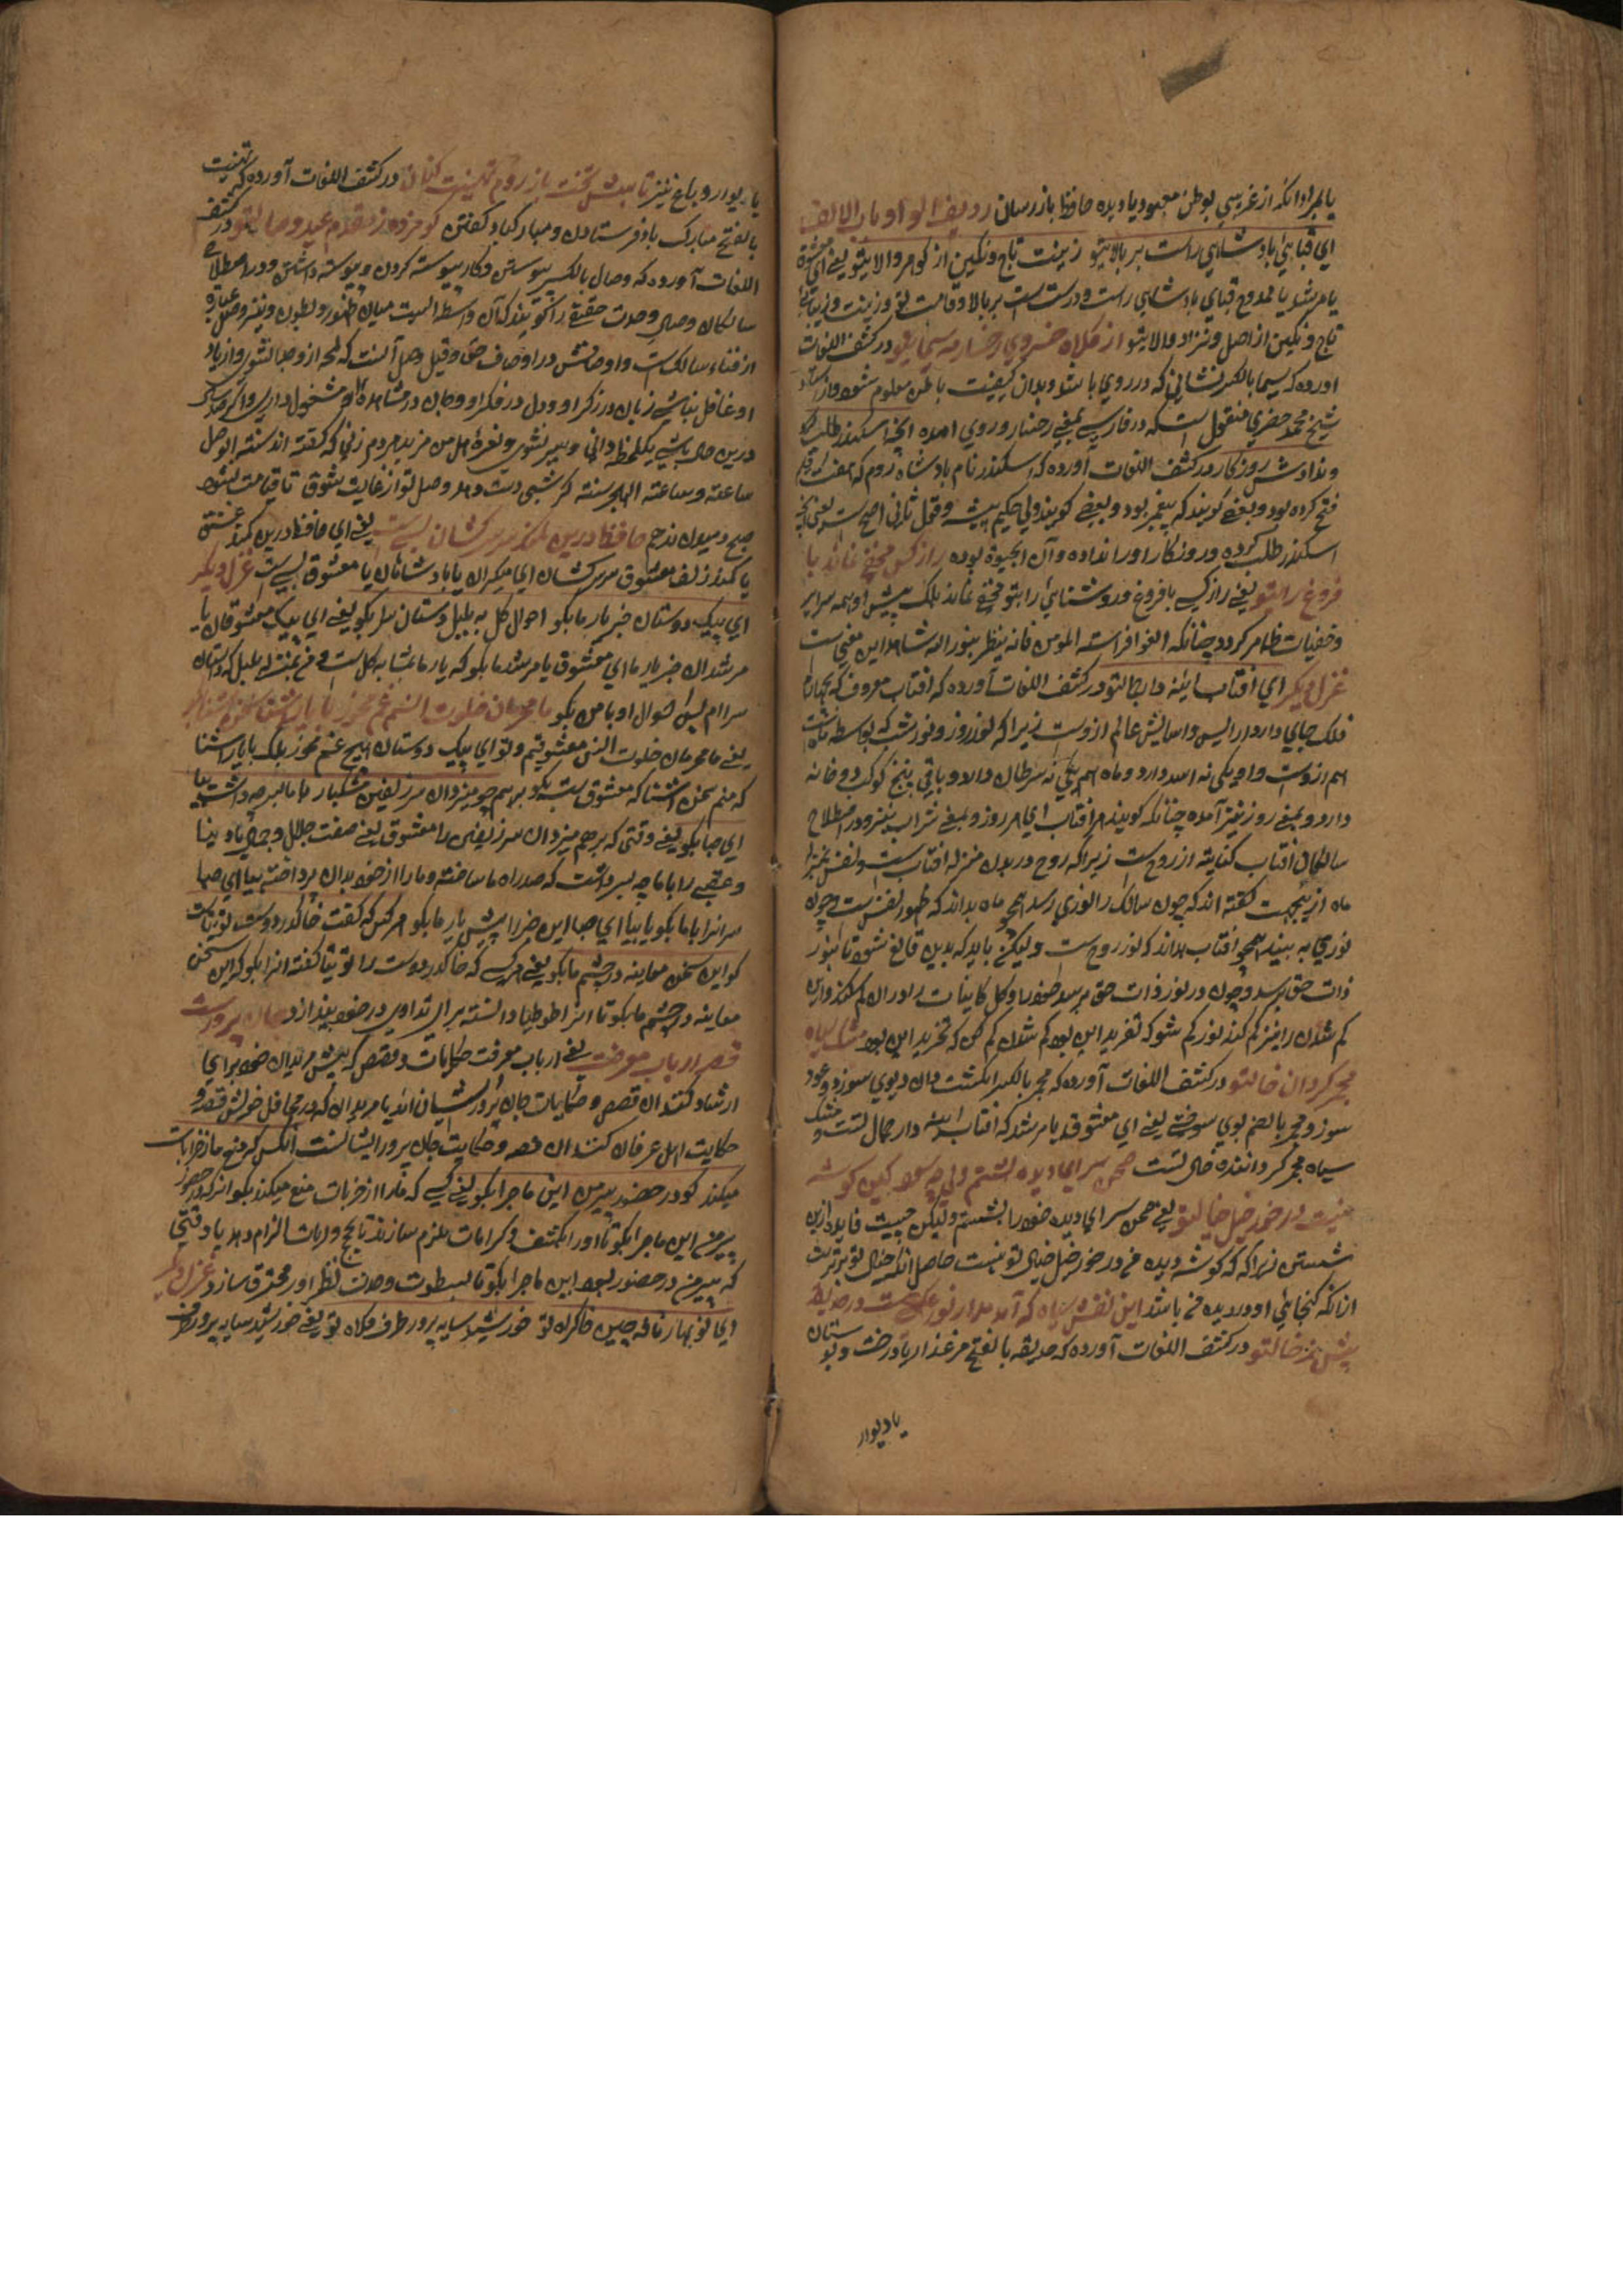 یا مراد آنکه از غریبی بوطن معهود یا دیده حافظ باز رسان ردیف الواو مع الالف
ای قبای پادشاهی راست بر بالای تو زینت تاج و نگین از گوهر والای تو یعنی ای معشوق
یا مرشد یا ممدوح قبای پادشاهی راست و درست است بر بالا و قامت تو و زینت و زیبائی
تاج و نگین از اصل و نژاد والای تو از کلاه خسروی رخسار مه سیمای تو در کشف اللغات
آورده که سیما بالکسر نشانی که در روی باشد و بدان کیفیت باطن معلوم شود و از استاد
شیخ محمد خضری منقول است که در فارسی بمعنی رخسار و روی آمده آنچه اسکندر طلب کرد
و ندادش روزگار در کشف اللغات آورده که اسکندر نام پادشاه روم که هفت اقلیم
فتح کرده بود و بعضی گویند که پیغمبر بود و بعضی گویند ولی حکیم پیشه و قول ثانی اصح است یعنی آنچه
اسکندر طلب کرده و روزگار او را نداده و آن آب حیوة بوده راز کس مخفی نماند با
فروغ رای تو یعنی راز کسی با فروغ و روشنائی رای تو مخفی نماند بلک پیش او همه سرایر
و خفیات ظاهر گردد چنانکه اتقوا فراسة المومن فانه ینظر بنور الله شاهد این معنی است
غزل دیگر ای آفتاب آینه دار جمال تو در کشف اللغات آورده که آفتاب معروف که بچهارم
فلک جای دارد و آرایش و آسایش عالم ازوست زیرا که نور روز و نور شب که بواسطه ماه است
هم ازوست و او یکی خانه اسد دارد و ماه هم یکی خانه سرطان دارد و باقی پنج کوکب دو خانه
دارد و بمعنی روز نیز آمده چنانکه گویند هر آفتاب ای هر روز و بمعنی شراب نیز و در اصطلاح
سالکان آفتاب کنایت از روح است زیرا که روح در بدن بمنزله آفتاب است و نفس بمنزله
ماه ازینجهت گفته اند که چون سالک را نوری رسد همچو ماه بداند که ظهور نفس است و چون
نوری به بیند همچو آفتاب بداند که نور روح است ولیکن باید که بدین قانع نشود تا بنور
ذات حق برسد و چون در نور ذات حق برسد خود را و کل کاینات را در آن گم کند و این
گم شدن را نیز گم کند نور گم شو که تفرید این بود گم شدن گم کن که تجرید این بود مشک سیاه
مجمر گردان خال تو در کشف اللغات آورده که مجمر بالکسر انگشت دان و بوی سوز و عود
سوز و مجمر بالضم بوی سوختنی یعنی ای معشوق یا مرشد که آفتاب آینه دار جمال تست و مشک
سیاه مجمر گرداننده خال تست صحن سرای دیده شستم ولی چه سود کین گوشه
نیست در خور خیل خیال تو یعنی صحن سرای دیده خود را بشستم ولیکن چیست فایده ازین
شستن زیرا که گوشه دیده من در خور خیل خیال تو نیست حاصل آنکه خیال تو برتر است
از آنکه گنجایی او در دیده من باشد این نقش سیاه که آمد مدار نور عکسیست در حدیقه
بینش ز خال تو در کشف اللغات آورده که حدیقه بالفتح مرغزار با درخت و بوستان
با دیوار
با دیوار و باغ نیز تا پیش بخت باز روم تهنیت کنان در کشف اللغات آورده که تهنیت
بالفتح مبارک باد فرستادن و مبارکباد گفتن کو مژده ز مقدم عید وصال تو در کشف
اللغات آورده که وصال بالکسر پیوستن و کار پیوسته کردن و پیوسته داشتن و در اصطلاح
سالکان وصال وحدت حقیقی را گویند که آن واسطه است میان ظهور و بطون و نیز وصل عبارة
از فناء سالک است و اوصافش در اوصاف حق و قیل وصل آنست که لمحه ازو جدا نشوی و از یاد
او غافل نباشی زبان در ذکر او و دل در فکر او و جان در مشاهده او مشغول داری و اگر صد سال
درین حال باشی یکلحظه دانی و سیر نشوی و نعره هل من مزید هر دم زنی که گفته اند سنة الوصل
ساعة و ساعة الهجر سنة گر شبی دست دهد وصل تو از غایت شوق تا قیامت نشود
صبح دمیدن ندهم حافظ درین کمند سر سرکشان بسیست یعنی ای حافظ درین کمند عشق
یا کمند زلف معشوق سر سرکشان ای میران یا پادشاهان یا معشوق بسی است غزل دیگر
ای پیک دوستان خبر یار ما بگو احوال گل به بلبل دستان سرا بگو یعنی ای پیک معشوقان یا
مرشدان خبر یار ما ای معشوق یا مرشد ما بگو که یار ما بمثابه گل است و من بمنزله بلبل که دستان
سرا ام پس احوال او با من بگو ما محرمان خلوت انسیم غم مخور با یار آشنا سخن آشنا بگو
یعنی ما محرمان خلوت انس معشوقیم و تو ای پیک دوستان هیچ غم مخور بلک با یار آشنا
که منم سخن آشنا که معشوق است بگو برهم چو میزد آن سر زلفین مشکبار با ما سر چه داشت بیا
ای صبا بگو یعنی وقتی که برهم میزد آن سر زلفین را معشوق یعنی صفت جلال و جمال یا دنیا
و عقبی را با ما چه سر داشت که صد راه ما ساخته و ما را از خود بدان پرداخته بیا ای صبا
سر آنرا با ما بگو یا بیا ای صبا این خبر را پیش یار ما بگو هر کس که گفت خاک در دوست توتیاست
گو این سخن معاینه در چشم ما بگو یعنی هر کسی که خاک در دوست را توتیا گفته آنرا بگو که این سخن
معاینه در چشم ما بگو تا آنرا طوطیا دانسته برای تداوی در خود بیندازد جان پرورست
قصه ارباب معرفت یعنی ارباب معرفت حکایات و قصص که پیش مریدان خود برای
ارشاد کنند آن قصص و حکایات جان پرور ایشان اند یا مریدان که در محافل خویش قصه و
حکایت اهل عرفان کنند آن قصه و حکایت جان پرور ایشانست آنکس که منع ما ز خرابات
میکند گو در حضور پیر من این ماجرا بگو یعنی کسی که ما را از خرابات منع میکند بگو آنرا که در حضور
پیر من این ماجرا بگو تا او را بکشف و کرامات ملزم سازند تا بحج و بینات الزام دهد یا وقتی
که پیر من در حضور بود این ماجرا بگو تا بسطوت وحدت نظر او را محترق سازد غزل دیگر
ای خونبهای نافه چین خاک راه تو خورشید سایه پرور طرف کلاه تو یعنی خورشید سایه پرور طرف